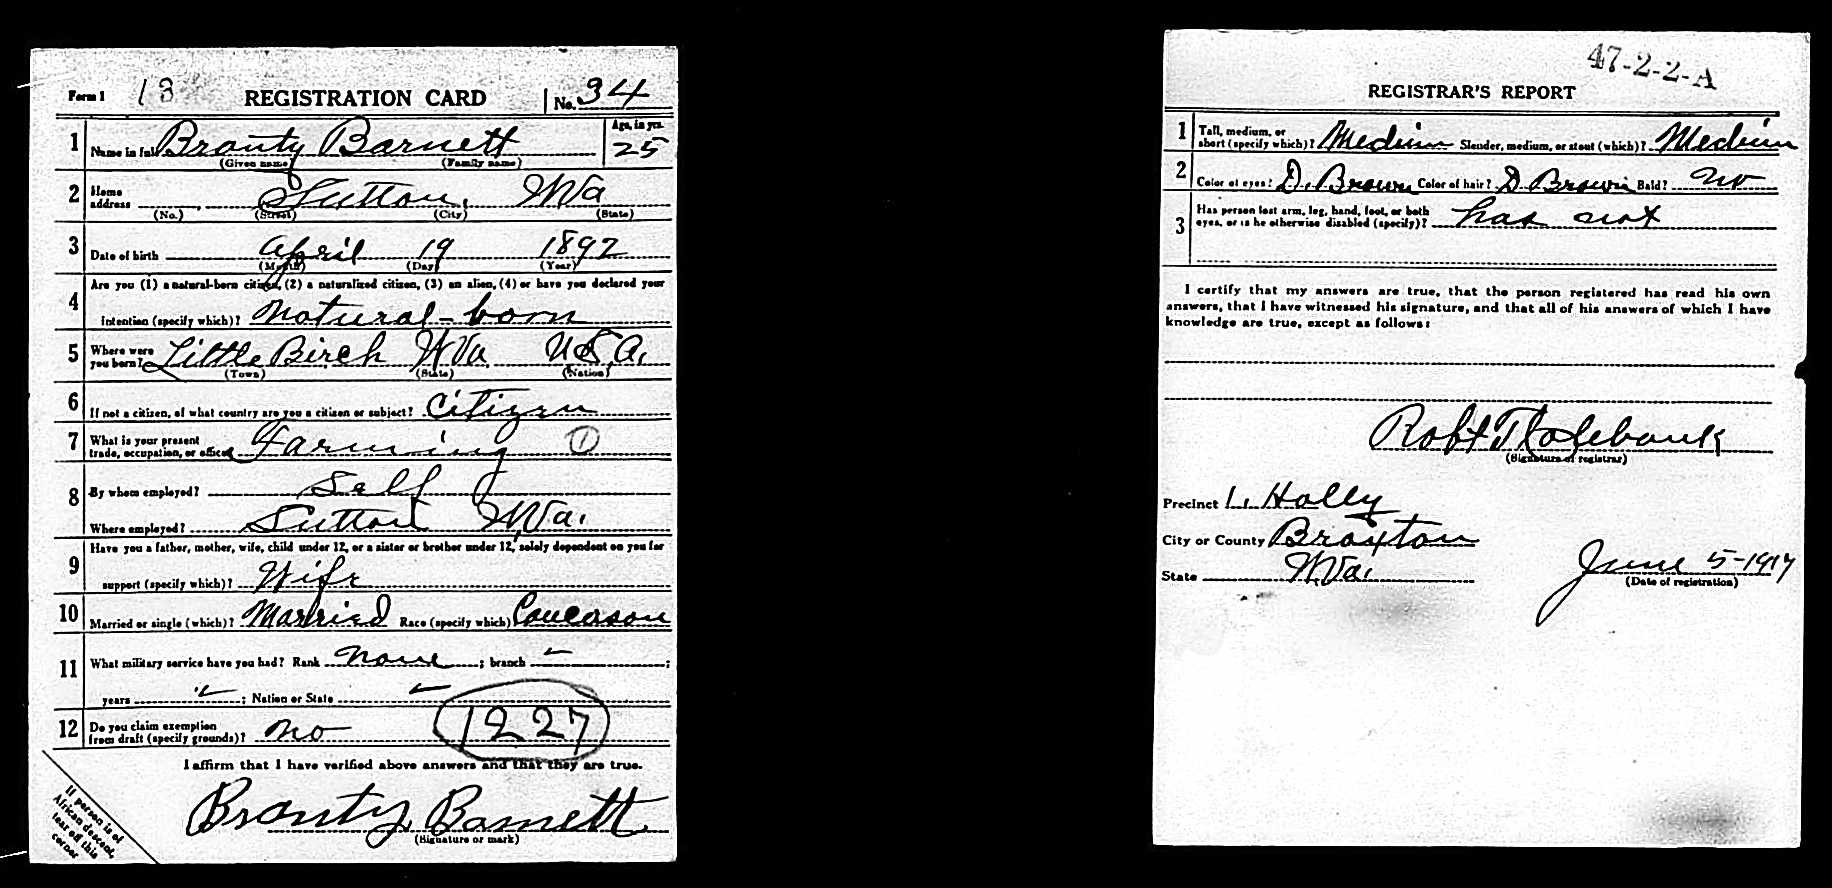 Form 1 13 REGISTRATION CARD No. 34
1 Name in full Branty Barnett Age, in yrs. 25
(Given name) (Family name)
2 Home address Sutton, W Va
(No.) (Street) (City) (State)
3 Date of birth April 19 1892
(Month) (Day) (Year)
4 Are you (1) a natural-born citizen, (2) a naturalized citizen, (3) an alien, (4) or have you declared your
intention (specify which)? Natural-born
5 Where were you born? Little Birch W Va. U.S.A.
(Town) (State) (Nation)
6 If not a citizen, of what country are you a citizen or subject? Citizen
7 What is your present trade, occupation, or office? Farming 1
8 By whom employed? Self
Where employed? Sutton W.Va.
9 Have you a father, mother, wife, child under 12, or a sister or brother under 12, solely dependent on you for
support (specify which)? Wife
10 Married or single (which)? Married Race (specify which) Caucason
11 What military service have you had? Rank None ; branch ;
years ; Nation or State
12 Do you claim exemption from draft (specify grounds)? No 1227
I affirm that I have verified above answers and that they are true.
Branty Barnett
(Signature or mark)
If person is of
African descent,
tear off this
corner
47-2-2-A
REGISTRAR'S REPORT
1 Tall, medium, or short (specify which)? Medium Slender, medium, or stout (which)? Medium
2 Color of eyes? D. Brown Color of hair? D Brown Bald? No
3 Has person lost arm, leg, hand, foot, or both
eyes, or is he otherwise disabled (specify)? has not
I certify that my answers are true, that the person registered has read his own
answers, that I have witnessed his signature, and that all of his answers of which I have
knowledge are true, except as follows:
Robt
(Signature of registrar)
Precinct L. Holly
City or County Braxton
State W.Va. June 5-1917
(Date of registration)